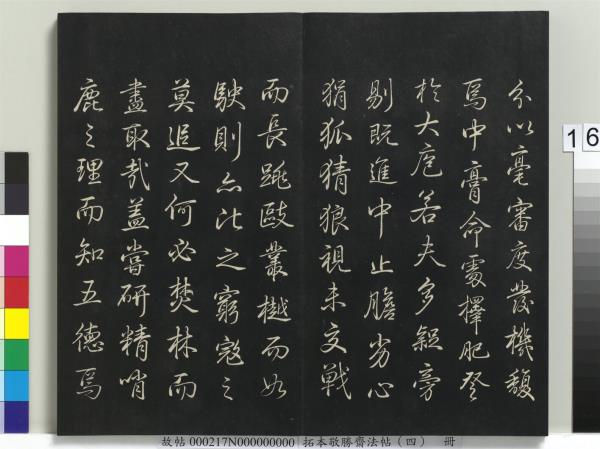 分以毫審度發機馥
焉中膏命處擇肥登
於大庖若夫多旁
剔既進中止膽劣心
狷狐猜狼視未交戰
而長跳敺叢樾而如
駛則亦比之窮寇之
莫追又何必焚林而
盡取哉蓋嘗研精哨
鹿之理而知五德焉
故帖 000217N000000000 拓本敬勝齋法帖（四） 冊
16